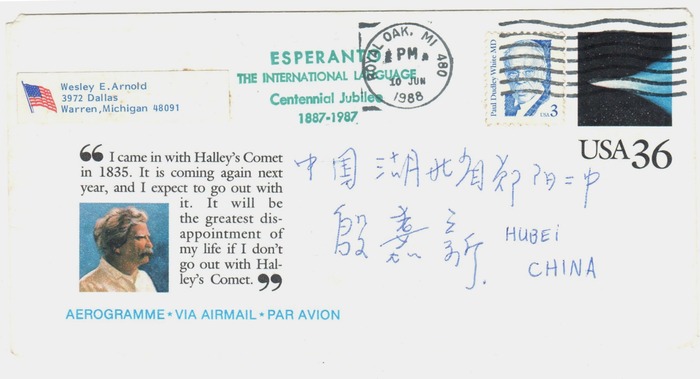 ESPERANTO
THE INTERNATIONAL LANGUAGE
Centennial Jubilee
1887-1987
ROYAL OAK, MI 480
PM
10 JUN
1988
Paul Dudley White MD
USA 3
USA 36
Wesley E. Arnold
3972 Dallas
Warren, Michigan 48091
“I came in with Halley's Comet
in 1835. It is coming again next
year, and I expect to go out with
it. It will be
the greatest dis-
appointment of
my life if I don't
go out with Hal-
ley's Comet.”
中国 湖北省郧阳二中
殷
HUBEI
CHINA
AEROGRAMME * VIA AIRMAIL * PAR AVION